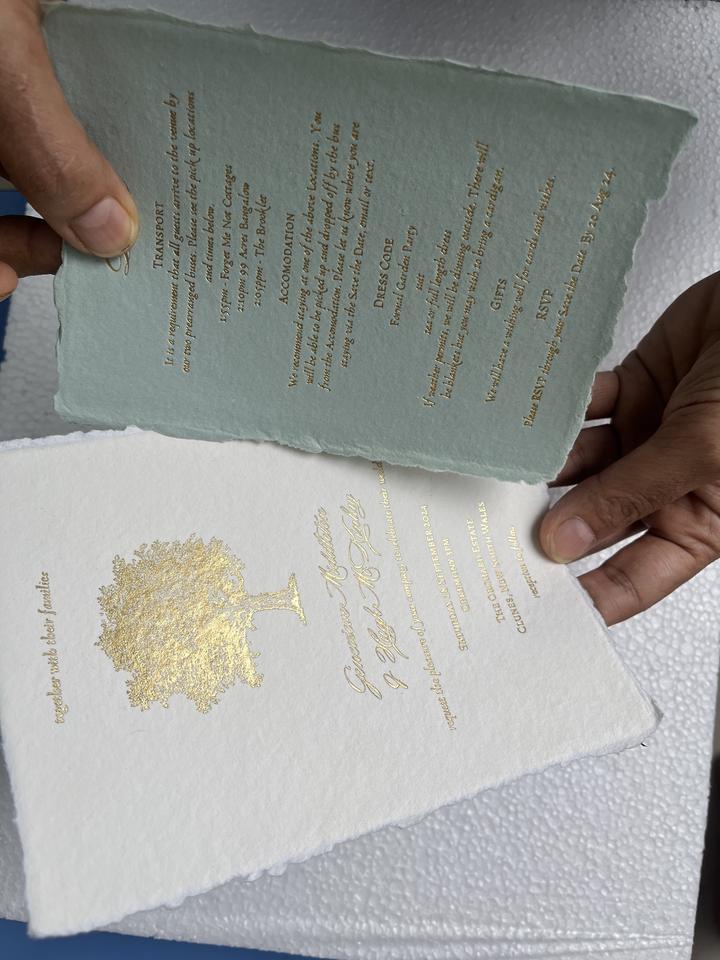 TRANSPORT
It is a requirement that all guests arrive to the venue by
our two prearranged buses. Please see the pick up locations
and times below.
1:55pm - Forget Me Not Cottages
2:10pm 99 Acres Bangalow
2:05ppm - The Brooklet
ACCOMODATION
We recommend staying at one of the above Locations. You
will be able to be picked up and dropped off by the bus
from the Accomodation. Please let us know where you are
staying via the Save the Date, email or text.
DRESS CODE
Formal Garden Party
suit
sea or full length dress
If weather permits, we will be dining outside. There will
be blankets but you may wish to bring a cardigan.
GIFTS
We will have a wishing well for cards and wishes.
RSVP
Please RSVP through your Save the Date By 20 Aug 24.
together with their families
& Hugh
request the pleasure of your company to celebrate their
SATURDAY 28 SEPTEMBER 2024
CEREMONY 3PM
THE ORCHARD ESTATE
CLUNES, NEW SOUTH WALES
reception to follow